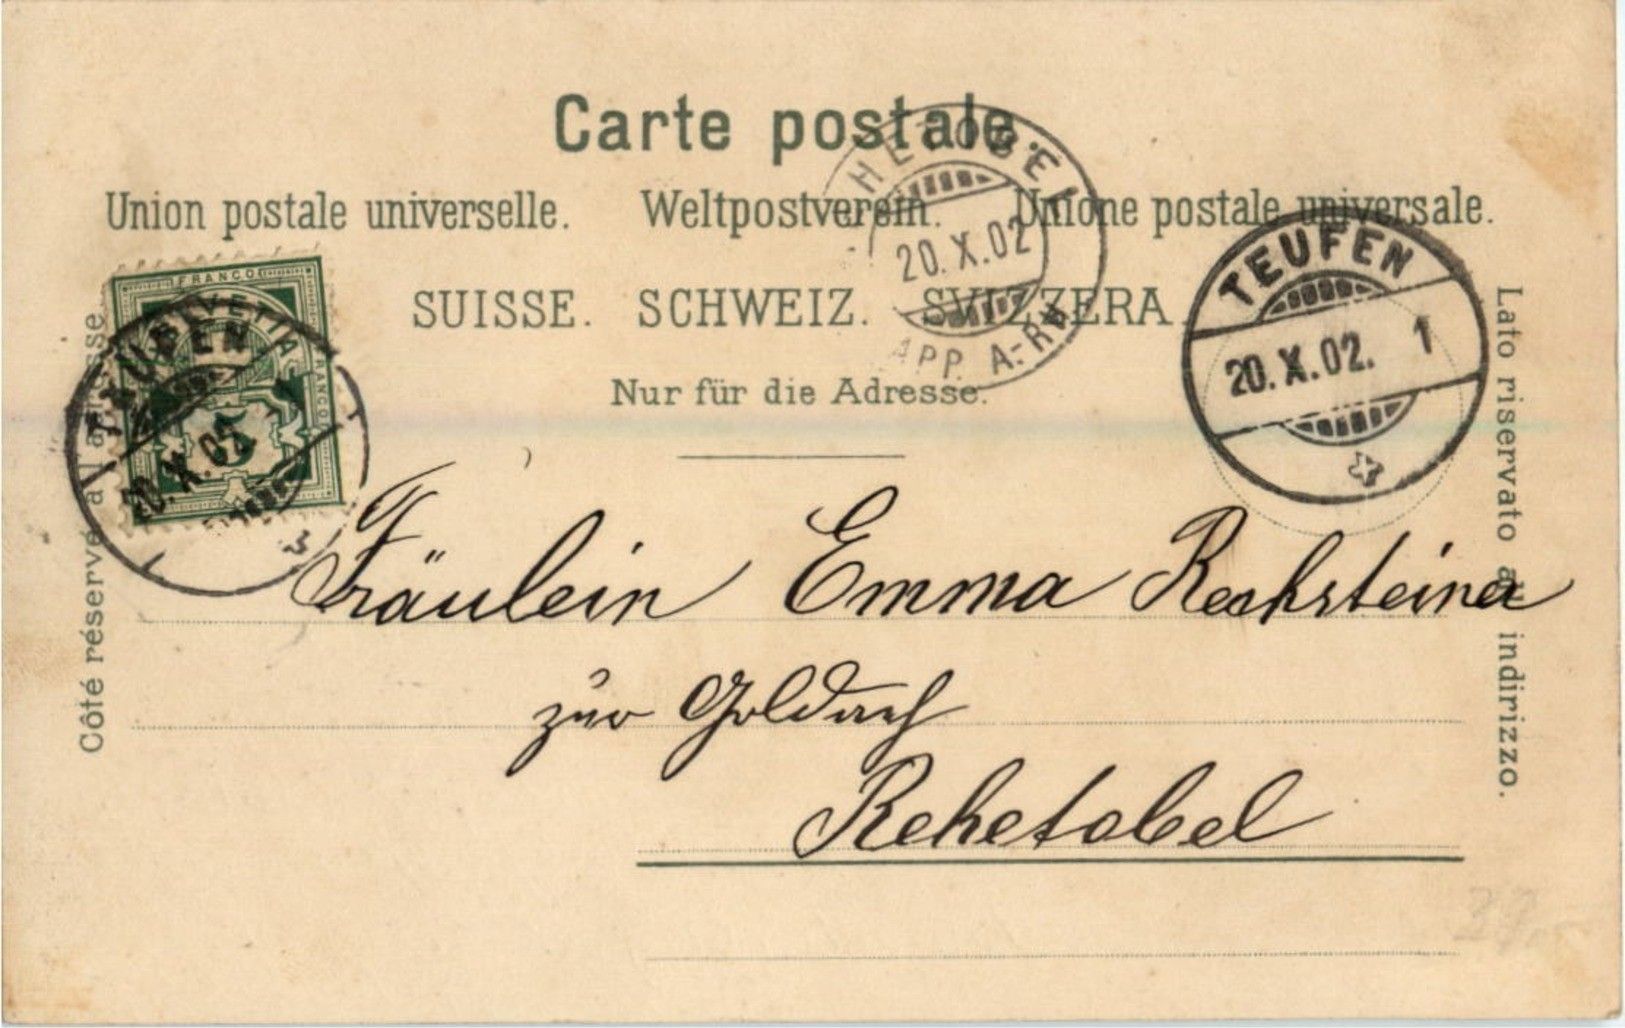 Carte postale.
Union postale universelle. Weltpostverein. Unione postale universale.
SUISSE. SCHWEIZ. SVIZZERA.
Nur für die Adresse.
Côté réservé à l'adresse.
Lato riservato all' indirizzo.
FRANCO
HELVETIA
FRANCO
5
TEUFEN
20.X.02
20.X.02
APP. A.-RH.
TEUFEN
20.X.02. 1
Fräulein Emma
zur Goldach
Rehetobel